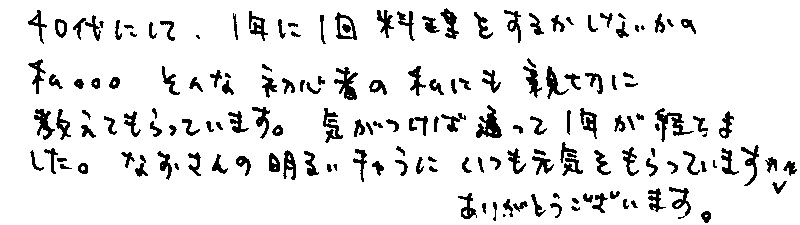 40代にして、1年に1回料理をするかしないかの
私。。。そんな初心者の私にも親切に
教えてもらっています。気がつけば通って1年が経ちま
した。なおさんの明るいキャラにいつも元気をもらっています
ありがとうございます。